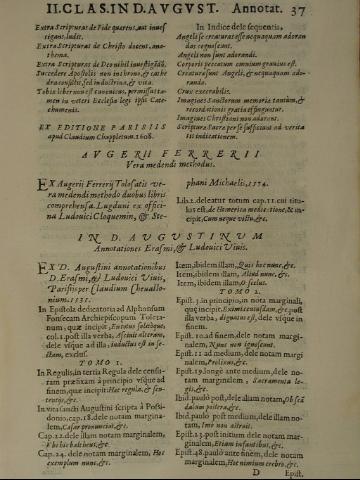 II. CLAS. IN D. AVGVST. Annotat. 37
Extra Scripturas de Fide quærens, aut inves
tigans, ludit.
Extra Scripturas de Christo docens, ana-
thema.
Extra Scripturas de Deo nihil inuestigādū.
Succedere Apostolis non in throno, & cathe
dra consistit, sed in doctrina, & vita.
Tobiæ liber non est canonicus, permissus ta-
men in veteri Ecclesia legi ipsis Cate-
chumenis.
EX EDITIONE PARISIIS
apud Claudium Choppletum. 1608.
In Indice dele sequentia.
Angeli se creaturas esse aquoquam adoran
dos cognoscunt.
Angeli non sunt adorandi.
Corporis peccatum omnium grauius est.
Creatura sunt Angeli, & nequaquam ado-
randi.
Crux execrabilis.
Imagines Sanctorum memoria tantum, &
recordationis gratia effinguntur.
Imagines Christi non adorant.
Scriptura Sacra per se sufficiens ad verita
tis indicationem.
AVGERII FERRERII
Vera medendi methodus.
EX Augerij Ferrerij Tolosatis ve-
ra medendi methodo duobus libris
comprehensa. Lugduni ex offici-
na Ludouici Cloquemin, & Ste-
phani Michaelis, 1574.
Lib. 2. deleatur totum cap. 11. cui titu
lus est, de Homerica medicatione, & in-
cipit, Cum neque victu, &c.
IN D. AVGVSTINVM
Annotationes Erasmi, & Ludouici Viuis.
EX D. Augustini annotationibus
D. Erasmi, & Ludouici Viuis,
Parisijs per Claudium Cheuallo-
nium. 1531.
In Epistola dedicatoria ad Alphonsum
Fonsecam Archiepiscopum Toleta-
num, quæ incipit, Extitit
col. 1. post illa verba,
dele vsque ad illa, inductus est in se-
ctam, exclus.
TOMO 1.
In Regulis, in tertia Regula dele censu-
ram præfixam à principio vsque ad
finem, quæ incipit: Hæc regula, & sen-
tentijs, &c.
In vita sancti Augustini scripta à Possi-
donio, cap. 18. dele notam margina-
lem, &c.
Cap. 22. dele illam notam marginalem,
&c.
Cap. 24. dele notam marginalem, Hoc
exemplum nunc, &c.
Item, ibidem illam, Quis hoc nunc, &c.
Item, ibidem illam, Aliud nunc, &c.
Item, ibidem illam, O seclus.
TOMO 2.
Epist. 5. in principio, in nota marginali,
quæ incipit. &c. post
illa verba, dele vsque in
finem.
Epist. 10. in fine, dele notam margina-
lem, Nunc non ignoscunt.
Epist. 12 ad medium, dele notam margi
nalem, &c.
Epist. 19. longè ante medium, dele notam
marginalem, Sacramenta le-
gis, &c.
Ibid. paulo post, dele aliam notam,
&c.
Ibid. paulo post medium, dele illam no-
tam,
Epist. 23. post initium dele notam mar-
ginalem, Etiam infantibus, &c.
Epist. 48. paulo ante finem, dele notam
marginalem, Hoc nimium crebro, &c.
D Epist.